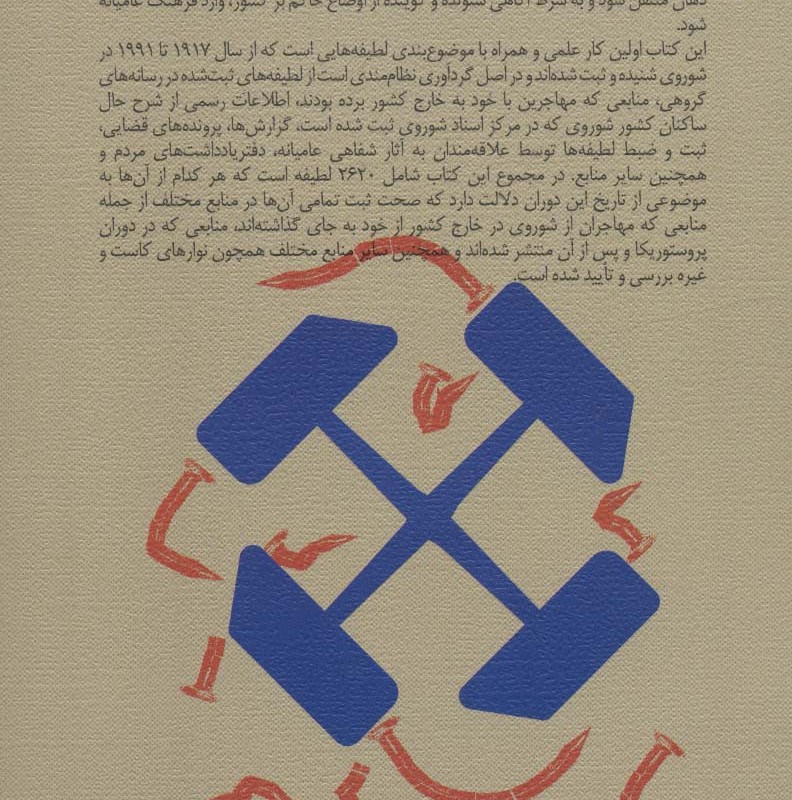 دهان منتقل شود و به شرط آگاهی شنونده و گوینده از اوضاع حاکم بر کشور، وارد فرهنگ عامیانه
شود.
این کتاب اولین کار علمی و همراه با موضوع‌بندی لطیفه‌هایی است که از سال ۱۹۱۷ تا ۱۹۹۱ در
شوروی شنیده و ثبت شده‌اند و در اصل گردآوری نظام‌مندی است از لطیفه‌های ثبت‌شده در رسانه‌های
گروهی، منابعی که مهاجرین با خود به خارج کشور برده بودند، اطلاعات رسمی از شرح حال
ساکنان کشور شوروی که در مرکز اسناد شوروی ثبت شده است، گزارش‌ها، پرونده‌های قضایی،
ثبت و ضبط لطیفه‌ها توسط علاقه‌مندان به آثار شفاهی عامیانه، دفتریادداشت‌های مردم و
همچنین سایر منابع. در مجموع این کتاب شامل ۲۶۲۰ لطیفه است که هر کدام از آن‌ها به
موضوعی از تاریخ این دوران دلالت دارد که صحت ثبت تمامی آن‌ها در منابع مختلف از جمله
منابعی که مهاجران از شوروی در خارج کشور از خود به جای گذاشته‌اند، منابعی که در دوران
پروستوریکا و پس از آن منتشر شده‌اند و همچنین سایر منابع مختلف همچون نوارهای کاست و
غیره بررسی و تأیید شده است.